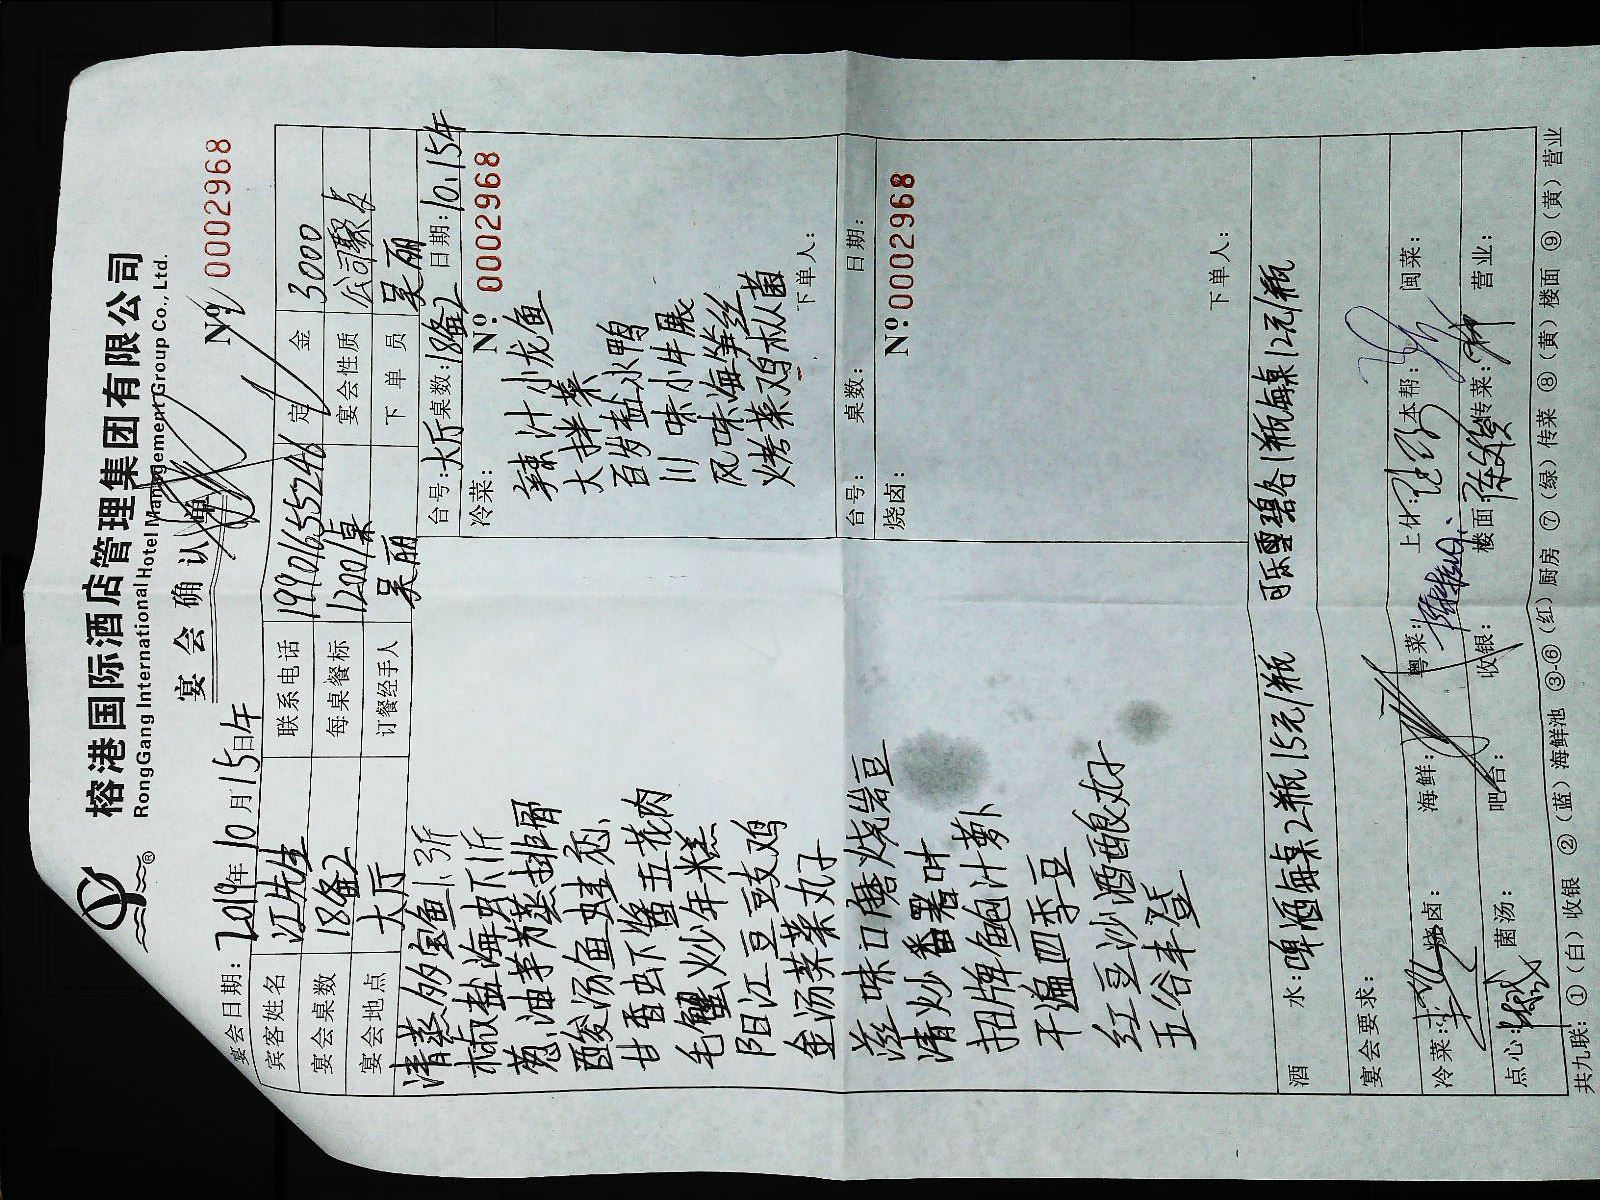 榕港国际酒店管理集团有限公司
RongGang International Hotel Management Group Co., Ltd.
宴会确认单
№ 0002968
宴会日期：2019年10月15日午
宾客姓名 江先生 联系电话 19901655246 定金 3000
宴会桌数 18备2 每桌餐标 1200/桌 宴会性质 公司聚
宴会地点 大厅 订餐经手人 吴丽 下单员 吴丽
台号：大厅 桌数：18备2 日期：10.15午
冷菜： № 0002968
辣汁小龙鱼
大拌菜
百岁盐水鸭
川味小牛展
风味海笋丝
烤菜鸡枞菌
下单人：
台号： 桌数： 日期：
烧卤： № 0002968
下单人：
清蒸多宝鱼1.3斤
椒盐海虾1斤
葱油芋艿蒸排骨
酸汤鱼蛙
甘香虾酱五花肉
毛蟹炒年糕
阳江豆豉鸡
金汤菜丸子
滋味口磨烧岩豆
清炒番署叶
招牌鲍汁萝卜
干遍四季豆
红豆沙酒酿丸子
五谷丰登
酒水：啤酒每桌2瓶15元/瓶 可乐雪碧各1瓶每桌12元/瓶
宴会要求：
冷菜： 烧卤： 海鲜： 粤菜： 上什： 本帮： 闽菜：
点心： 菌汤： 吧台： 收银： 楼面： 传菜： 营业：
共九联：①（白）收银 ②（蓝）海鲜池 ③-⑥（红）厨房 ⑦（绿）传菜 ⑧（黄）楼面 ⑨（黄）营业